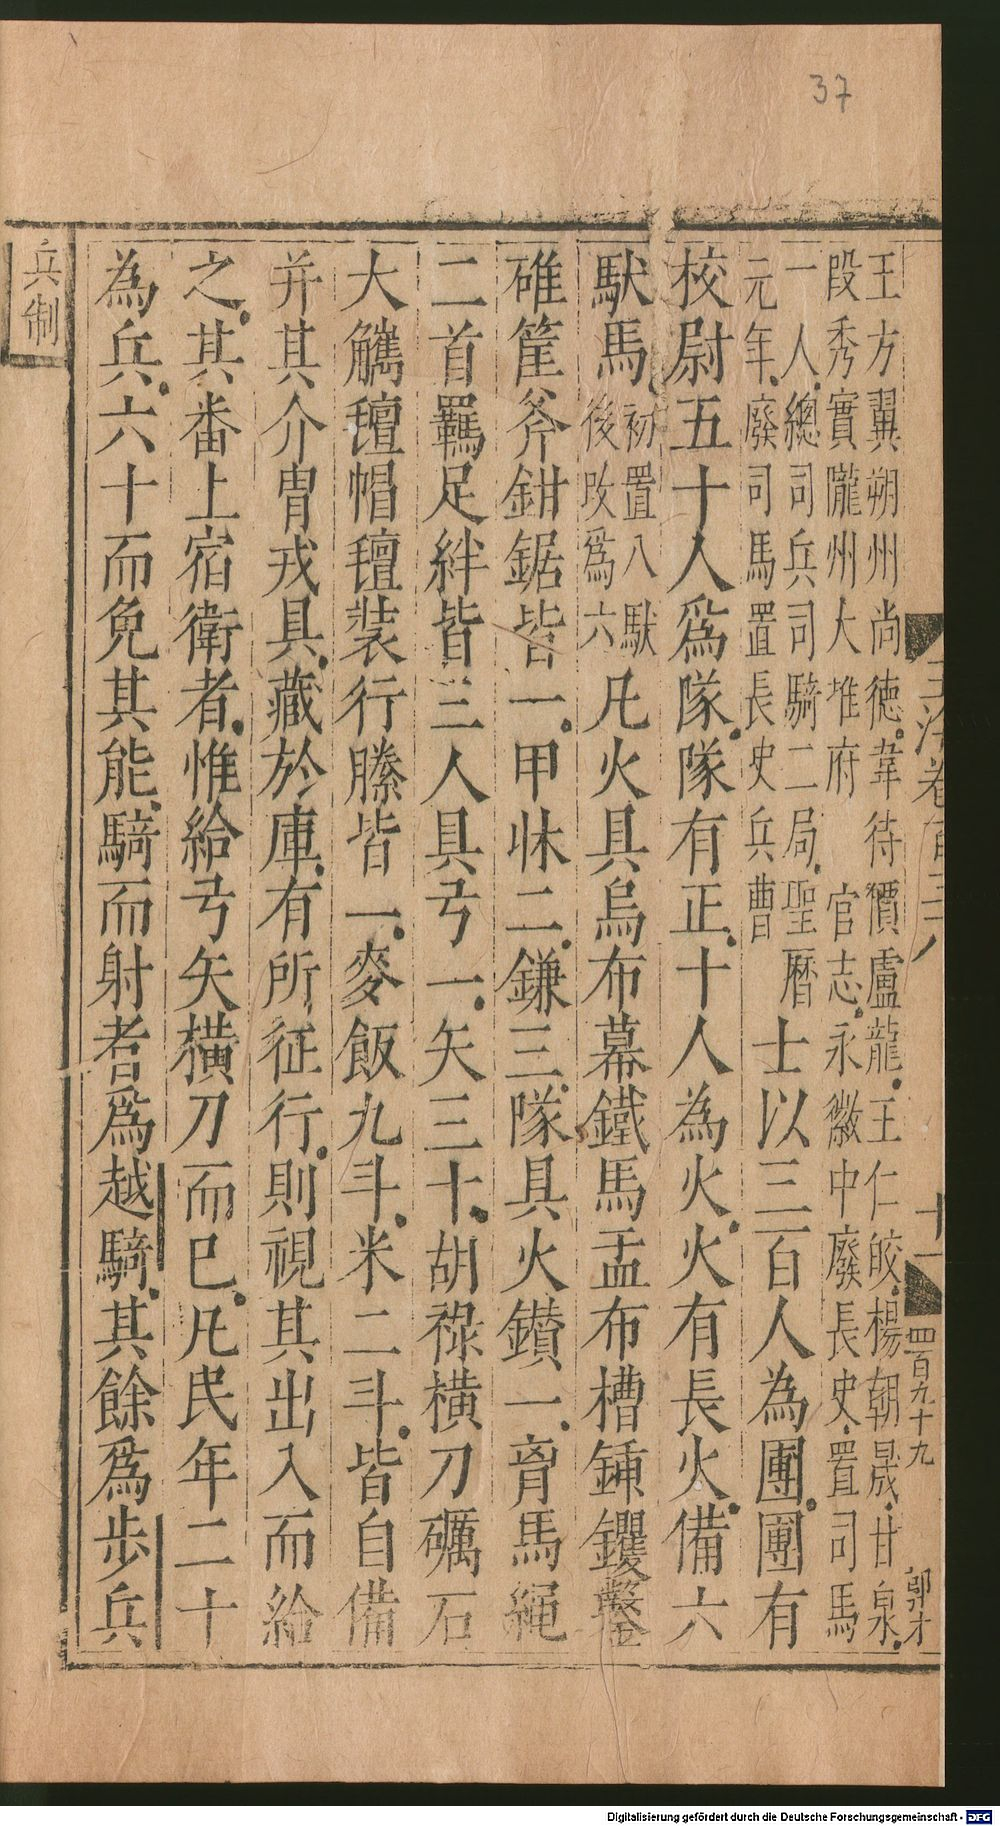 37
王方翼朔州尚德韋待價盧龍王仁皎楊朝晟甘泉
段秀實隴州大堆府　官志永徽中廢長史置司馬
一人總司兵司騎二局聖曆
元年廢司馬置長史兵曹
士以三百人為團團有
校尉五十人爲隊隊有正十人為火火有長火備六
馱馬
初置八馱
後改爲六
凡火具烏布幕鐵馬盂布槽鍤钁鑿
碓筐斧鉗鋸皆一甲牀二鎌三隊具火鑚一胷馬繩
二首羈足絆皆三人具弓一矢三十胡祿橫刀礪石
大觿氊帽氊裝行縢皆一麥飯九斗米二斗皆自備
并其介胄戎具藏於庫有所征行則視其出入而給
之其番上宿衛者惟給弓矢橫刀而已凡民年二十
為兵六十而免其能騎而射者爲越騎其餘爲步兵
兵制
卷百三八
十一
四百九十九
郭才
Digitalisierung gefördert durch die Deutsche Forschungsgemeinschaft - DFG